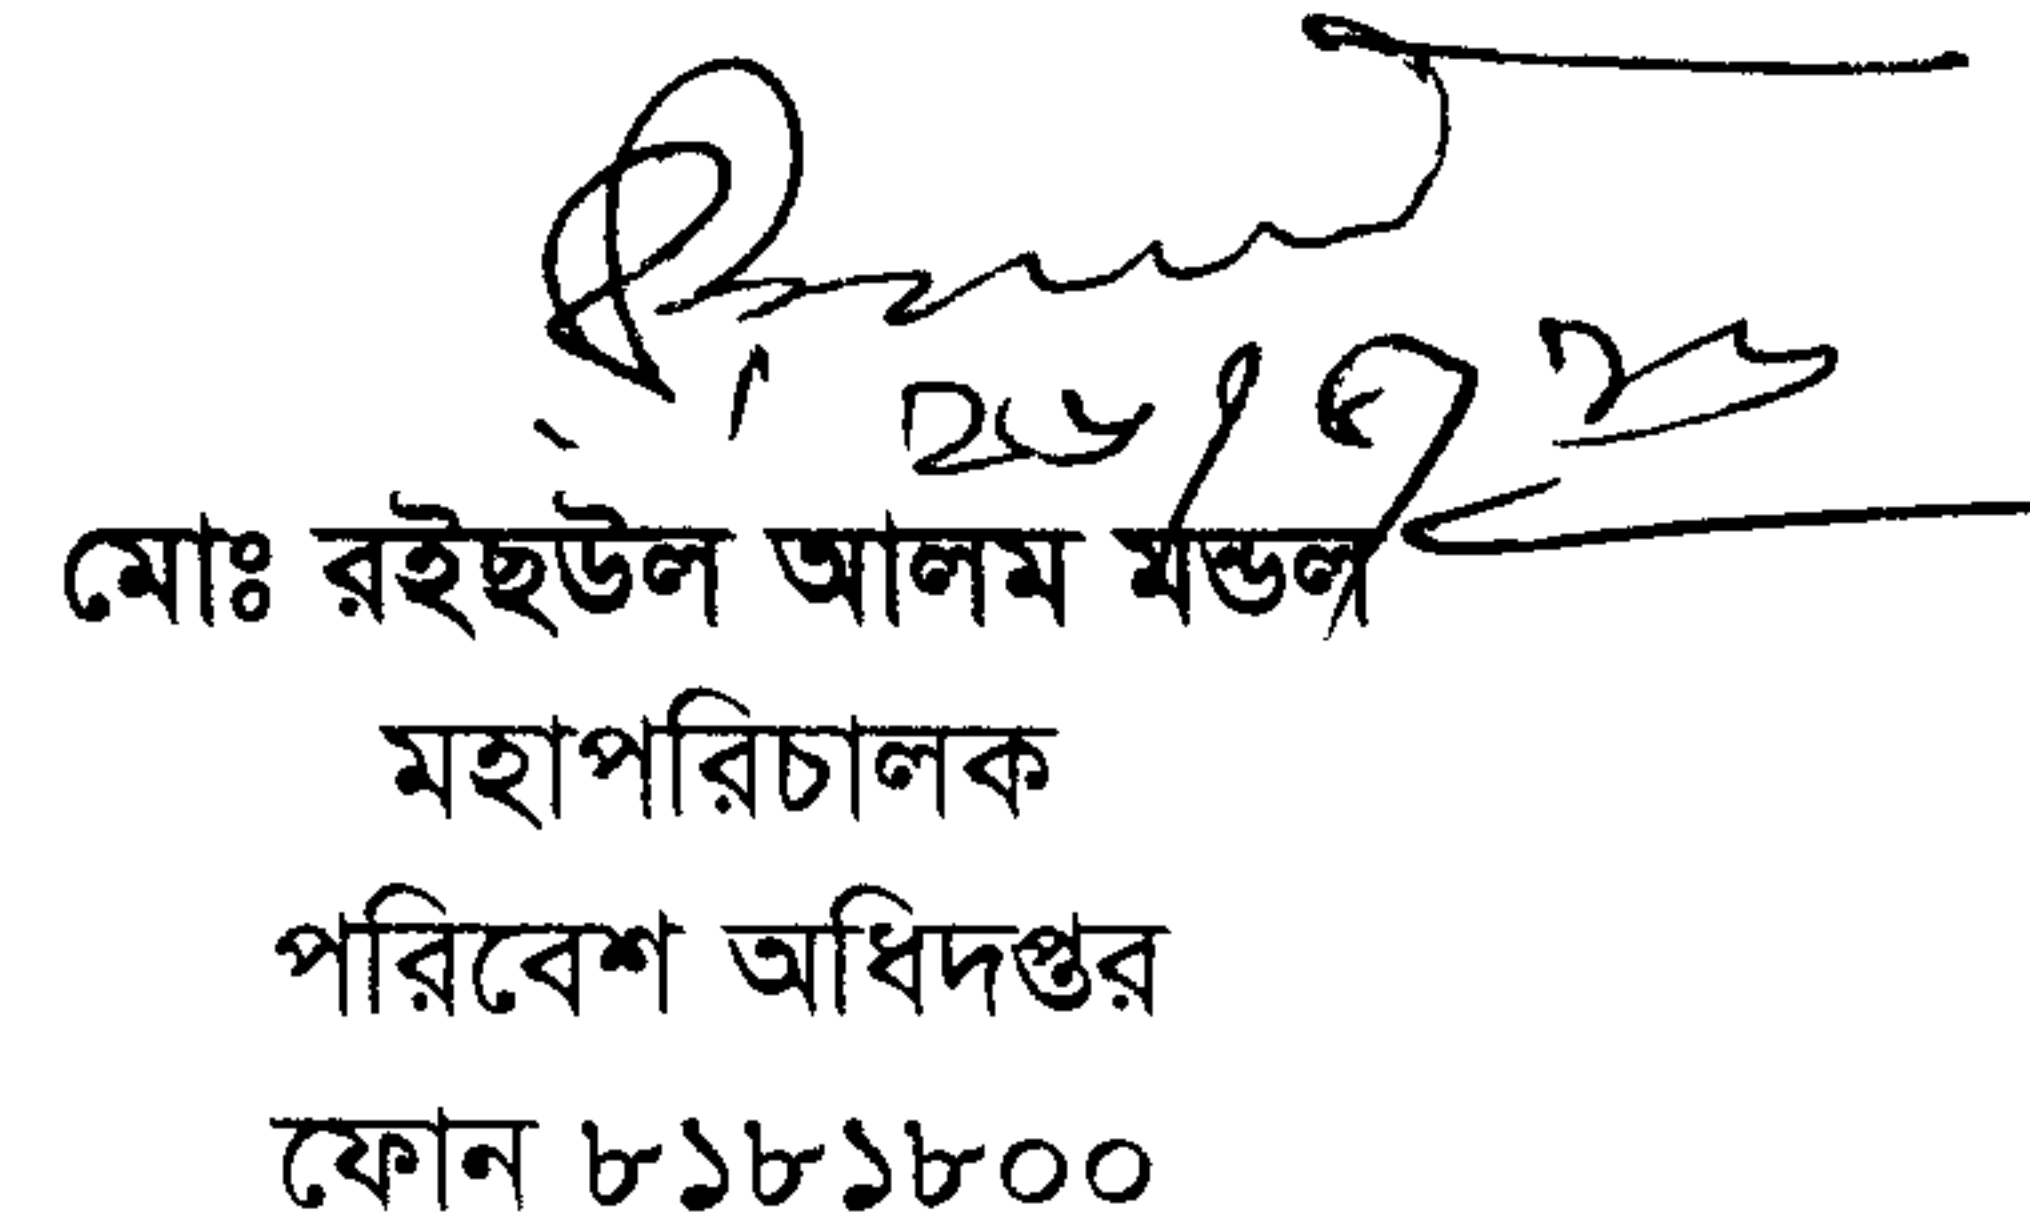 মোঃ রইছউল আলম মন্ডল
মহাপরিচালক
পরিবেশ অধিদপ্তর
ফোন ৮১৮১৮০০